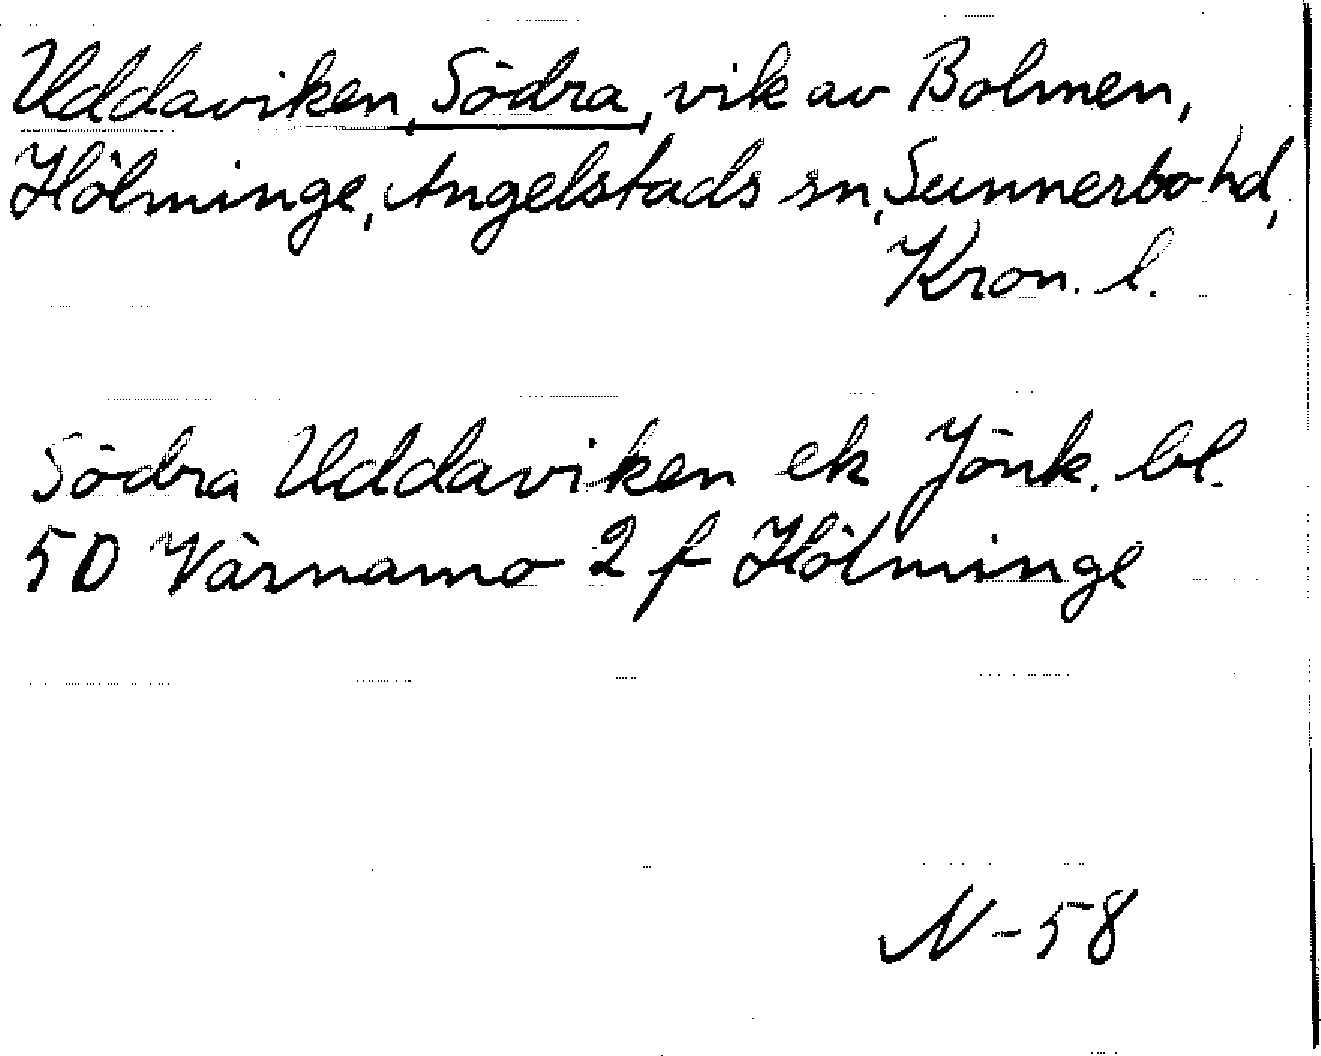 Uddaviken, Södra, vik av Bolmen,
Hölminge, Angelstads sn, Sunnerbo hd,
Kron. l.
Södra Uddaviken ek Jönk. bl.
5D Värnamo 2 f Hölminge
N-58